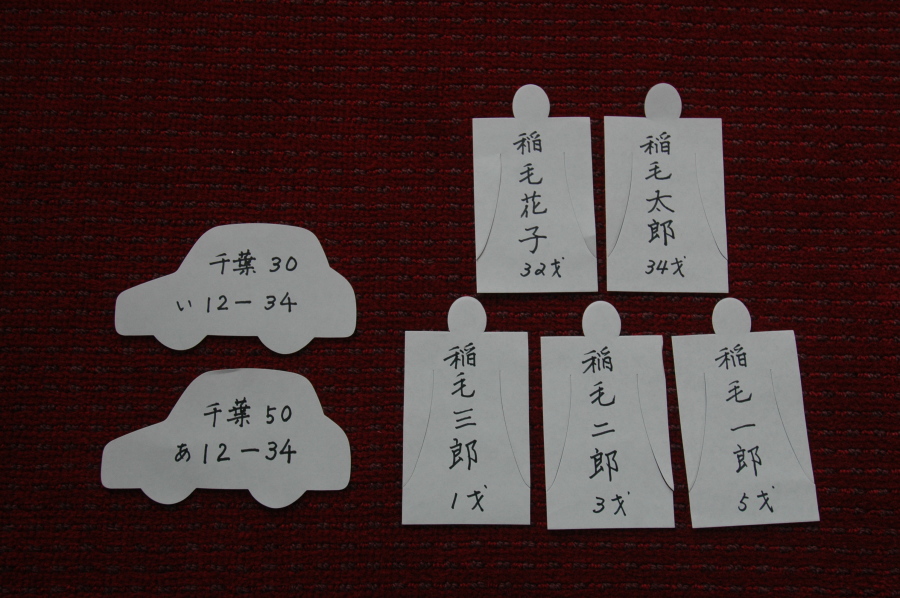 千葉 30
い 12－34
千葉 50
あ 12－34
稲毛太郎
34才
稲毛花子
32才
稲毛一郎
5才
稲毛二郎
3才
稲毛三郎
1才